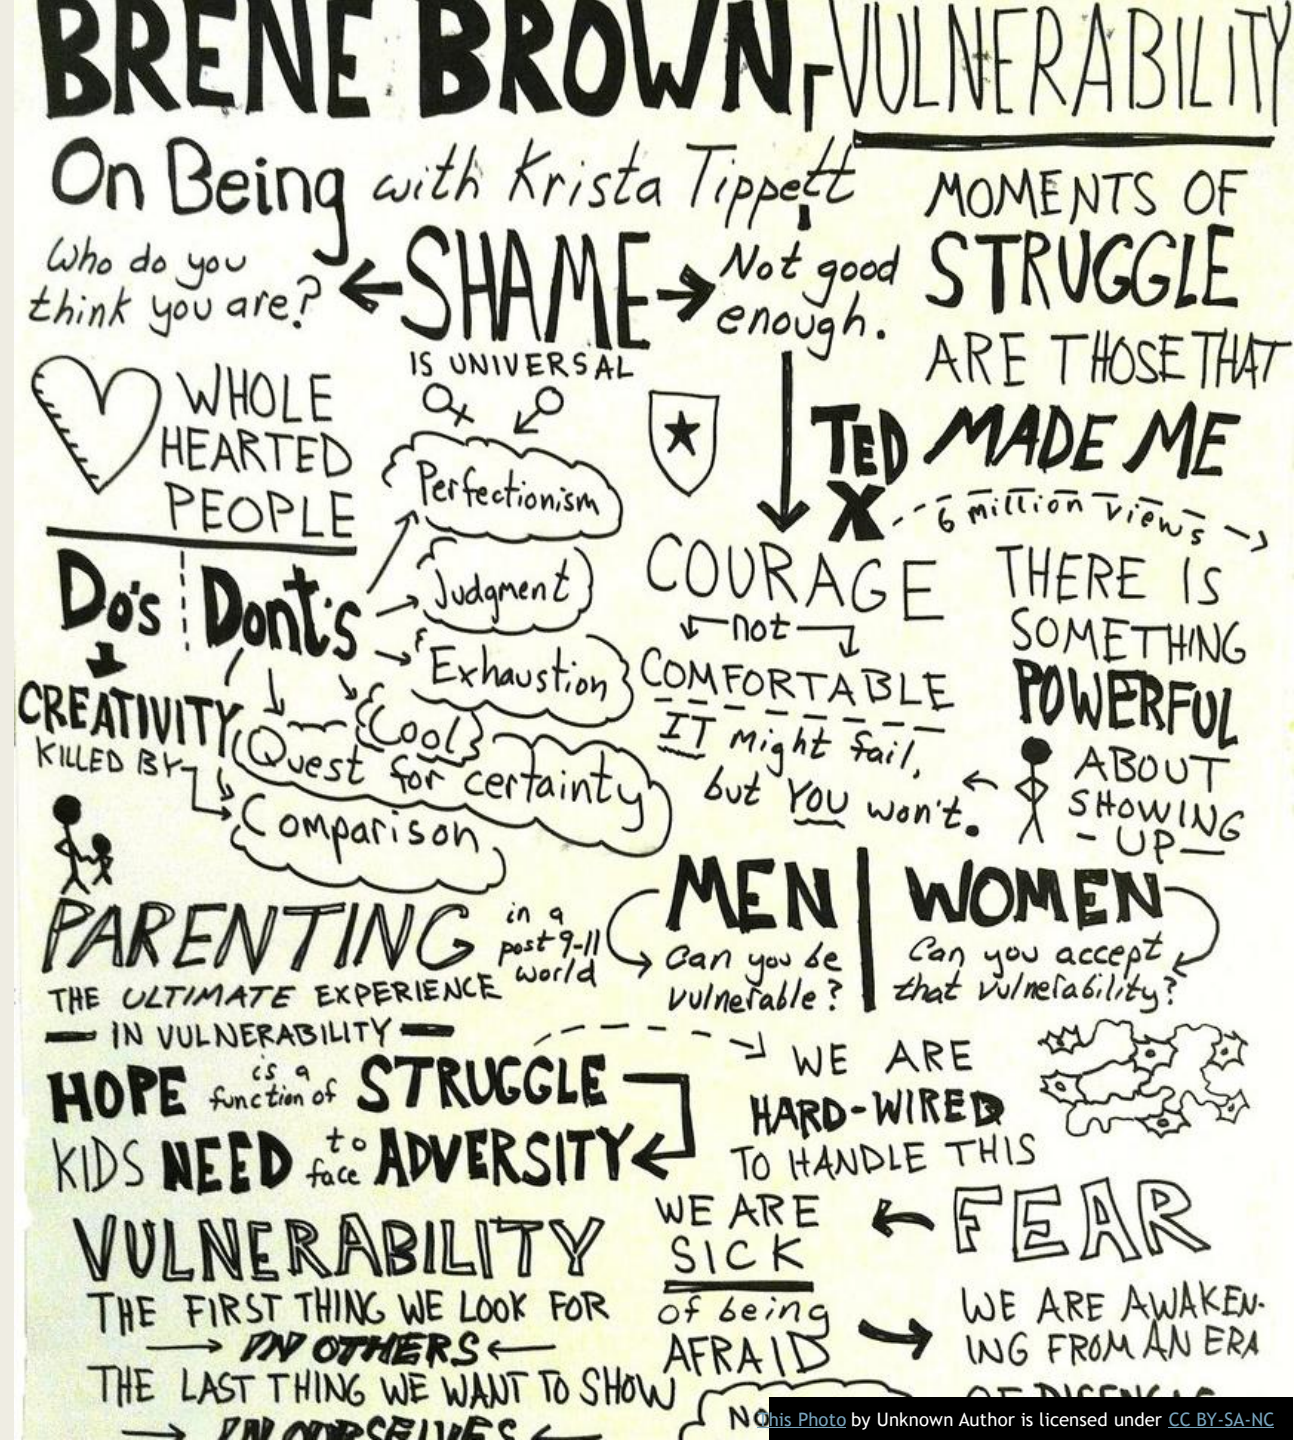 BRENE BROWN
VULNERABILITY
On Being with Krista Tippett
MOMENTS OF
STRUGGLE
ARE THOSE THAT
MADE ME
Who do you
think you are?
SHAME
IS UNIVERSAL
Not good
enough.
WHOLE
HEARTED
PEOPLE
Do's
Dont's
Perfectionism
Judgment
Exhaustion
Cool
Quest for certainty
Comparison
CREATIVITY
KILLED BY
TED
X
6 million views
COURAGE
not
COMFORTABLE
IT might fail,
but YOU won't.
THERE IS
SOMETHING
POWERFUL
ABOUT
SHOWING
- UP -
PARENTING
in a
post 9-11
world
THE ULTIMATE EXPERIENCE
IN VULNERABILITY
MEN
Can you be
vulnerable?
WOMEN
Can you accept
that vulnerability?
HOPE is a function of STRUGGLE
KIDS NEED to face ADVERSITY
WE ARE
HARD-WIRED
TO HANDLE THIS
VULNERABILITY
THE FIRST THING WE LOOK FOR
IN OTHERS
THE LAST THING WE WANT TO SHOW
IN OURSELVES
WE ARE
SICK
of being
AFRAID
FEAR
WE ARE AWAKEN-
ING FROM AN ERA
OF
This Photo by Unknown Author is licensed under CC BY-SA-NC